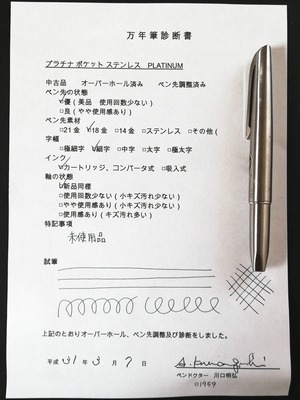 万年筆診断書
プラチナ ポケット ステンレス PLATINUM
中古品 オーバーホール済み ペン先調整済み
ペン先の状態
☑優(美品 使用回数少ない)
□良(やや使用感あり)
ペン先素材
□21金 ☑18金 □14金 □ステンレス □その他(
字幅
□極細字 ☑細字 □中字 □太字 □極太字
インク
☑カートリッジ、コンバータ式 □吸入式
軸の状態
☑新品同様
□使用回数少ない(小キズ汚れ少ない)
□やや使用感あり(小キズ汚れ少ない)
□使用感あり(キズ汚れ多い)
特記事項
未使用品
試筆
上記のとおりオーバーホール、ペン先調整及び診断をしました。
平成 31 年 3 月 7 日
ペンドクター 川口明弘
01959